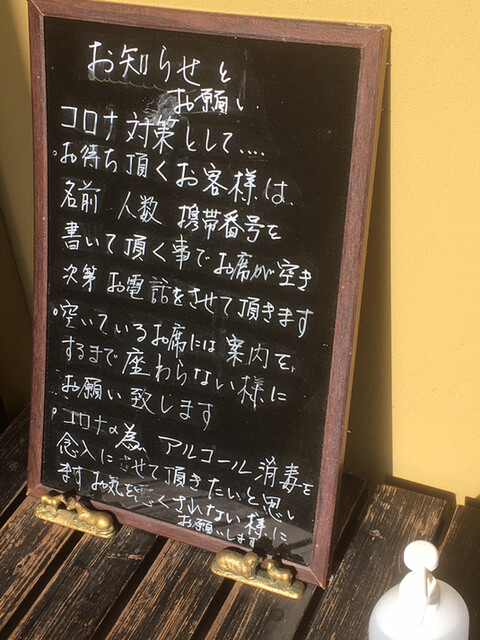 お知らせと
お願い
コロナ対策として....
。お待ち頂くお客様は、
名前 人数 携帯番号を
書いて頂く事でお席が空き
次第 お電話をさせて頂きます
。空いているお席には案内を
するまで座わらない様に
お願い致します
。コロナの為、アルコール消毒を
念入にさせて頂きたいと思い
ますお気を悪くされない様に
お願いします